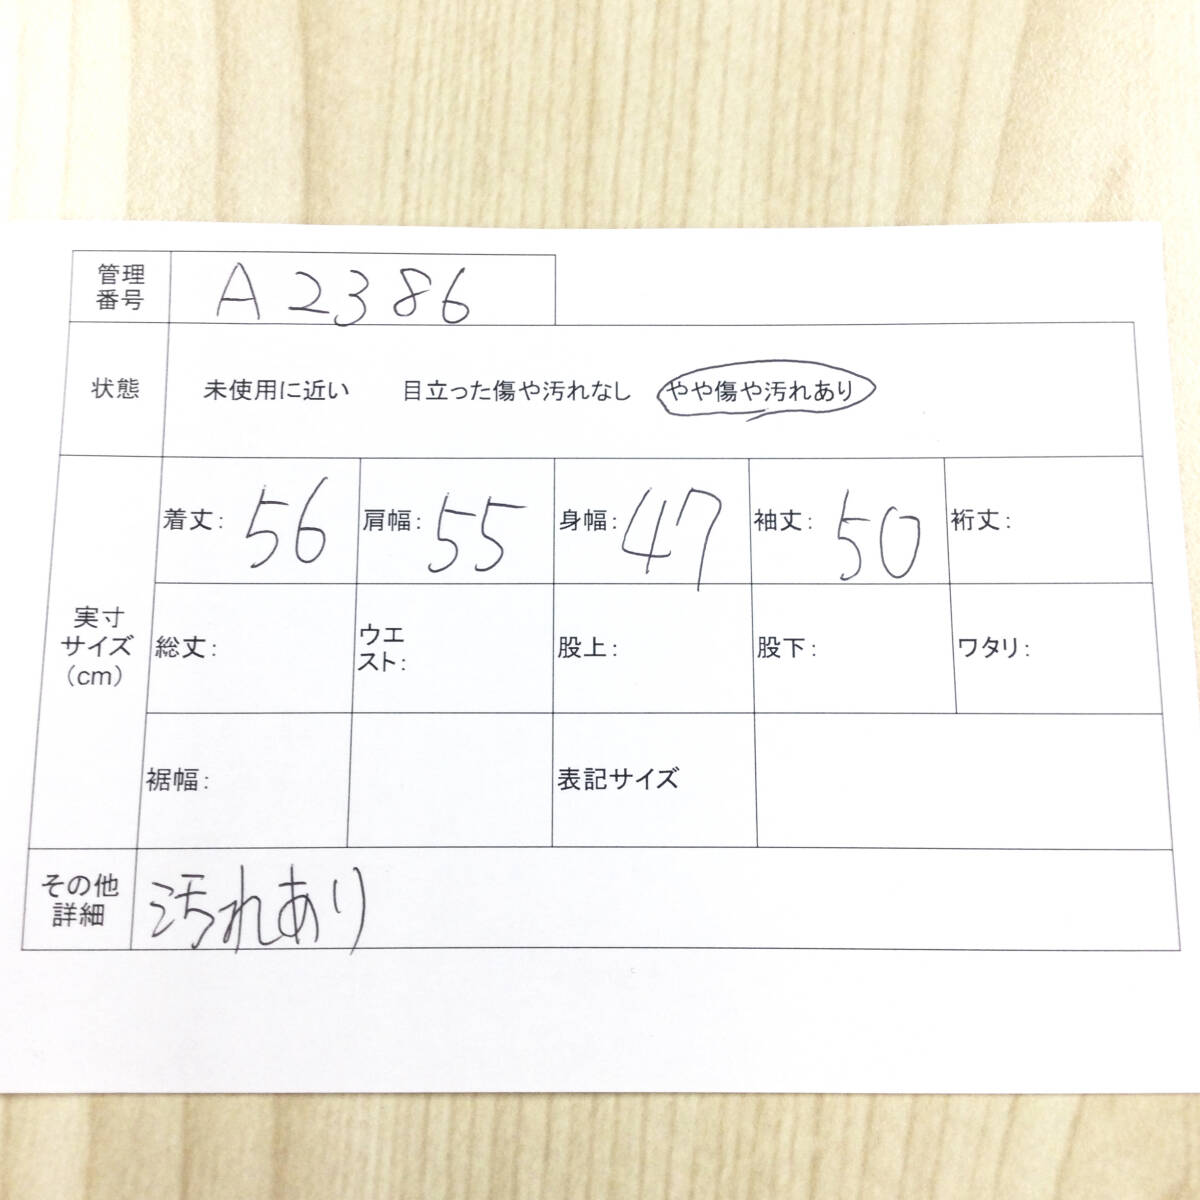 管理
番号
A2386
状態
未使用に近い 目立った傷や汚れなし やや傷や汚れあり
実寸
サイズ
(cm)
着丈: 56 肩幅: 55 身幅: 47 袖丈: 50 裄丈:
総丈: ウエ
スト: 股上: 股下: ワタリ:
裾幅: 表記サイズ
その他
詳細
汚れあり